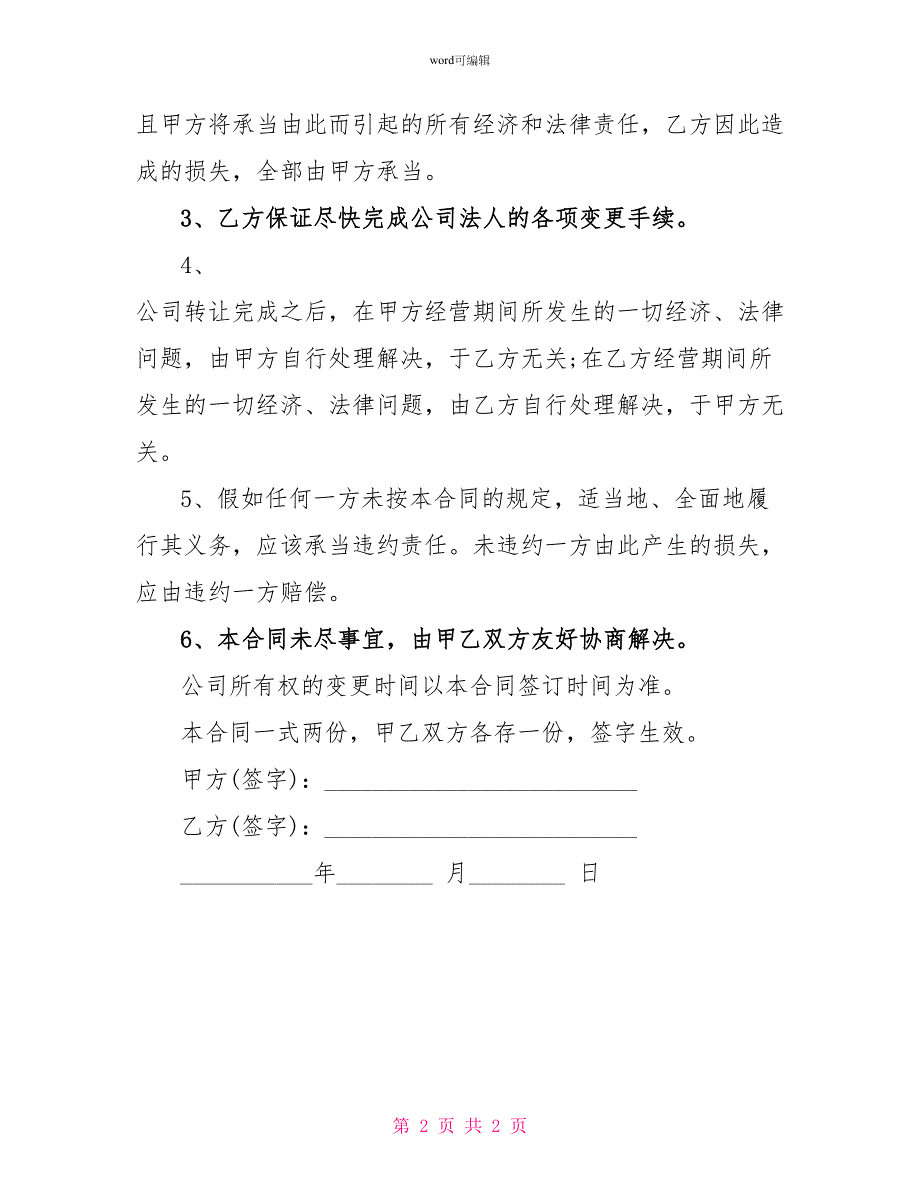 word可编辑
且甲方将承当由此而引起的所有经济和法律责任，乙方因此造
成的损失，全部由甲方承当。
3、乙方保证尽快完成公司法人的各项变更手续。
4、
公司转让完成之后，在甲方经营期间所发生的一切经济、法律
问题，由甲方自行处理解决，于乙方无关;在乙方经营期间所
发生的一切经济、法律问题，由乙方自行处理解决，于甲方无
关。
5、假如任何一方未按本合同的规定，适当地、全面地履
行其义务，应该承当违约责任。未违约一方由此产生的损失，
应由违约一方赔偿。
6、本合同未尽事宜，由甲乙双方友好协商解决。
公司所有权的变更时间以本合同签订时间为准。
本合同一式两份，甲乙双方各存一份，签字生效。
甲方(签字)：__________________________
乙方(签字)：__________________________
___________年________ 月________ 日
第 2 页 共 2 页